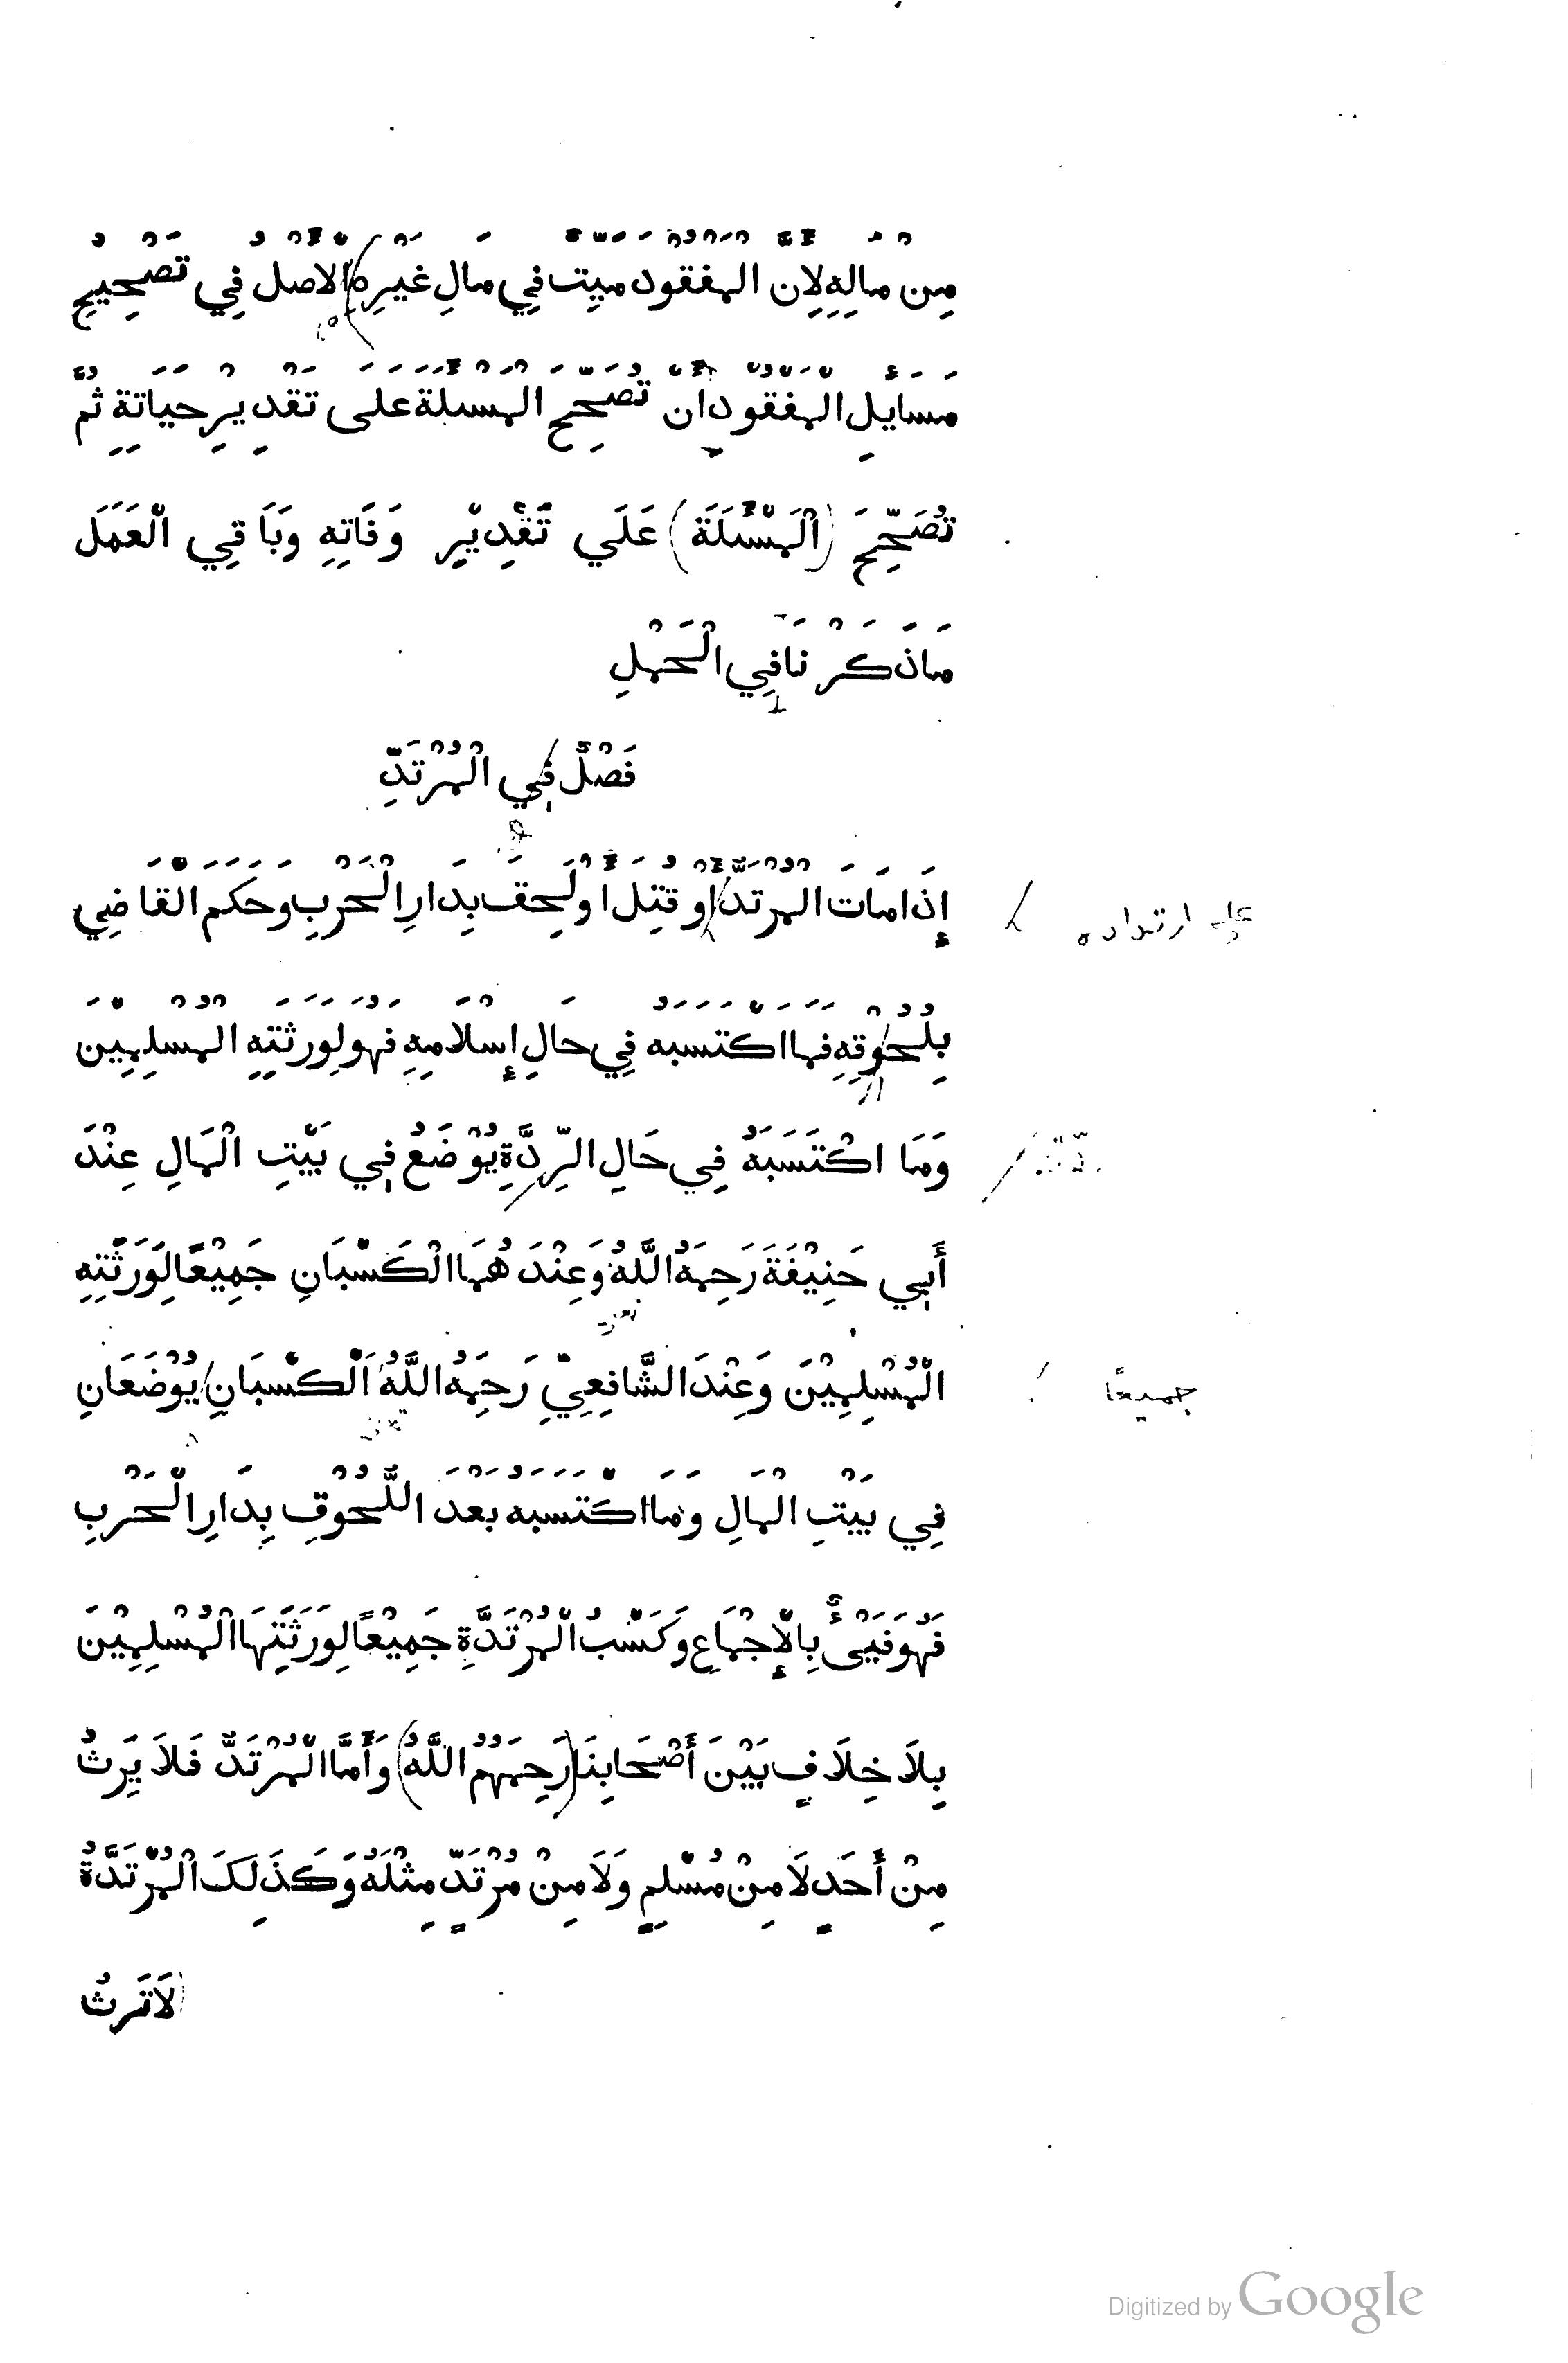 مِنْ مالِهِ لِأَنَّ الْمَفْقُودَ مَيِّتٌ فِي مَالِ غَيْرِهِ (الْأَصْلُ فِي تَصْحِيْحِ
مَسَائِلِ الْمَفْقُودِ أَنْ تُصَحِّحَ الْمَسْئَلَةَ عَلَى تَقْدِيْرِ حَيَاتِهِ ثُمَّ
تُصَحِّحَ (الْمَسْئَلَةَ) عَلَي تَقْدِيْرِ وَفَاتِهِ وَبَاقِي الْعَمَلَ
مَا ذَكَرْنَا فِي الْحَمْلِ
فَصْلٌ فِي الْمُرْتَدِّ
إِذَا مَاتَ الْمُرْتَدُّ أَوْ قُتِلَ أَوْ لَحِقَ بِدَارِ الْحَرْبِ وَحَكَمَ الْقَاضِي
على ارتداده
بِلُحُوْقِهِ فَمَا اكْتَسَبَهُ فِي حَالِ إِسْلَامِهِ فَهُوَ لِوَرَثَتِهِ الْمُسْلِمِيْنَ
وَمَا اكْتَسَبَهُ فِي حَالِ الرِّدَّةِ يُوْضَعُ فِي بَيْتِ الْمَالِ عِنْدَ
أَبِي حَنِيْفَةَ رَحِمَهُ اللَّهُ وَعِنْدَ هُمَا الْكَسْبَانِ جَمِيْعًا لِوَرَثَتِهِ
الْمُسْلِمِيْنَ وَعِنْدَ الشَّافِعِيِّ رَحِمَهُ اللَّهُ اَلْكَسْبَانِ يُوْضَعَانِ
جميعًا
فِي بَيْتِ الْمَالِ وَمَا اكْتَسَبَهُ بَعْدَ اللُّحُوْقِ بِدَارِ الْحَرْبِ
فَهُوَ فَيْئٌ بِالْإِجْمَاعِ وَكَسْبُ الْمُرْتَدَّةِ جَمِيْعًا لِوَرَثَتِهَا الْمُسْلِمِيْنَ
بِلَا خِلَافٍ بَيْنَ أَصْحَابِنَا (رَحِمَهُمُ اللَّهُ) وَأَمَّا الْمُرْتَدُّ فَلَا يَرِثُ
مِنْ أَحَدٍ لَا مِنْ مُسْلِمٍ وَلَا مِنْ مُرْتَدٍّ مِثْلَهُ وَكَذَلِكَ الْمُرْتَدَّةُ
لَا تَرِثُ
Digitized by Google